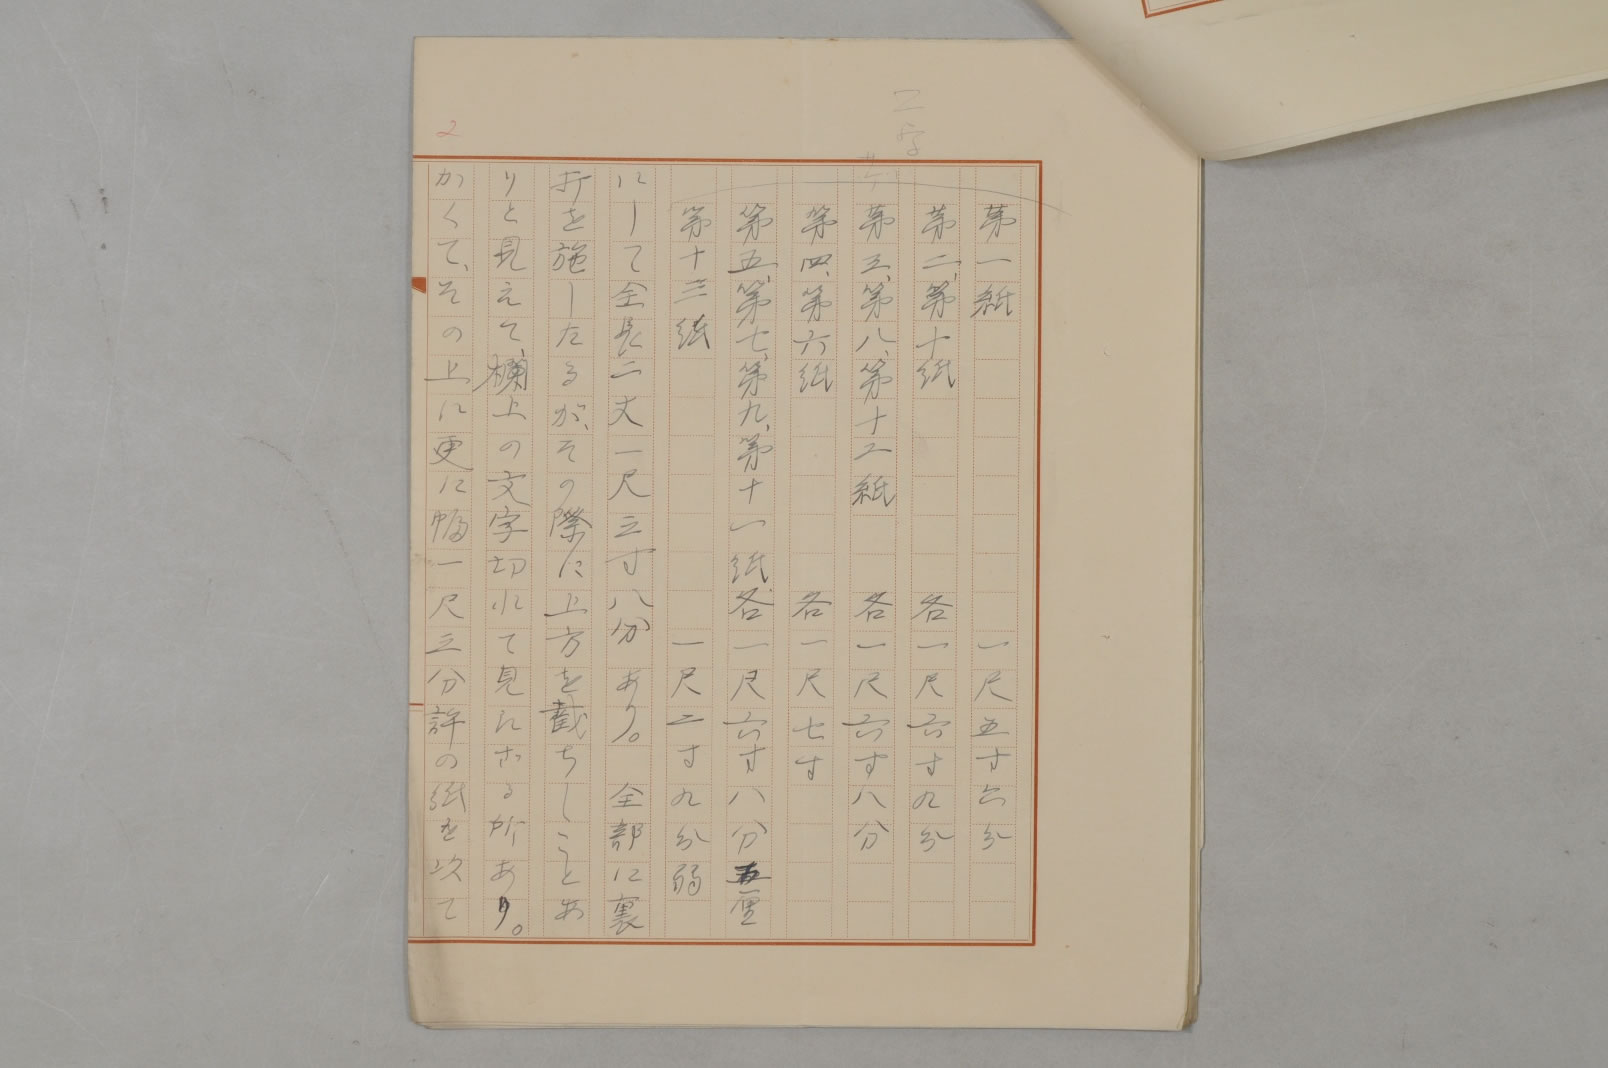 2
二字
第一紙　一尺五寸六分
第二、第十紙　各一尺六寸九分
第三、第八、第十二紙　各一尺六寸八分
第四、第六紙　各一尺七寸
第五、第七、第九、第十一紙各一尺六寸八分五厘
第十三紙　一尺二寸九分弱
にして全長二丈一尺三寸八分あり。　全部に裏
打を施したるが、その際に上方を截ちしことあ
りと見えて、欄上の文字切れて見えざる所あり。
かくて、その上に更に幅一尺三分許の紙を次て